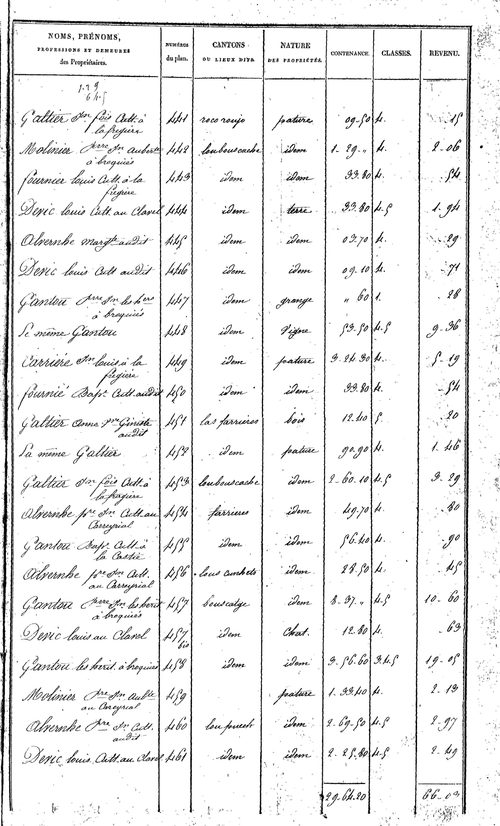 NOMS, PRÉNOMS, PROFESSIONS ET DEMEURES des Propriétaires. | NUMÉROS du plan. | CANTONS OU LIEUX DITS. | NATURE DES PROPRIÉTÉS. | CONTENANCE. | CLASSES. | REVENU.
129
645
Galtier Jn fois Cult. à la fregière 441 rocoroujo pature 09-50 4. 15
Molinier pierre Jn auberte à broquiès 442 loubouscache idem 1-29-" 4. 2-06
fournier louis Cult. à la fregière 443 idem idem 33.80 4. -54
Deric louis Cult. au Clavel 444 idem terre 33.80 4.5 1.94
Alvernhe margte audit 445 idem idem 03.70 4. 29
Deric louis Cult audit 446 idem idem 09.10 4. 71
Gantou pierre Jn les hers à broquiès 447 idem grange " 60 1. 28
Le même Gantou 448 idem Vigne 53.50 4.5 9-36
Carrière Jn louis à la fregière 449 idem pature 3-24.30 4. 5-19
fournié Bapt. Cult. audit 450 idem idem 33.80 4. -54
Galtier anne Vve Giniste audit 451 las farrieres bois 12.40 5 20
La même Galtier 452 idem pature 90.90 4. 1-46
Galtier Jn fois Cult. à la fregière 453 loubouscache idem 2-60.10 4.5 3-29
Alvernhe pre Jn Cult. au Carreyrial 454 farrieres idem 49.70 4. 80
Gantou Bapt. Cult. à la Coste 455 idem idem 56.40 4. 90
Alvernhe pre Jn Cult. au Carreyrial 456 idem 28.50 4. 45
Gantou pierre Jn les hérit à broquiès 457 idem 8.37." 4.5 10-60
Deric louis au Clavel 457 bis idem Chat. 12.80 4. 63
Gantou les hérit. à broquiès 458 idem idem 3-56.60 3.4.5 19-05
Molinier pre Jn Aubte au Carreyrial 459 pature 1-33.40 4. 2-13
Alvernhe pre Jn Cult. audit 460 lou puech idem 2-69.50 4.5 2-97
Deric louis Cult. au Clavel 461 idem idem 2-25.80 4.5 2-49
29.64.20 66-03